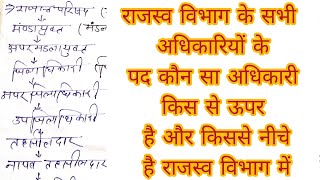 राजस्व परिषद
मण्डलायुक्त
अपर मण्डलायुक्त
जिलाधिकारी
अपर जिलाधिकारी
उप जिलाधिकारी
तहसीलदार
नायब तहसीलदार
राजस्व विभाग के सभी
अधिकारियों के
पद कौन सा अधिकारी
किस से ऊपर
है और किससे नीचे
है राजस्व विभाग में